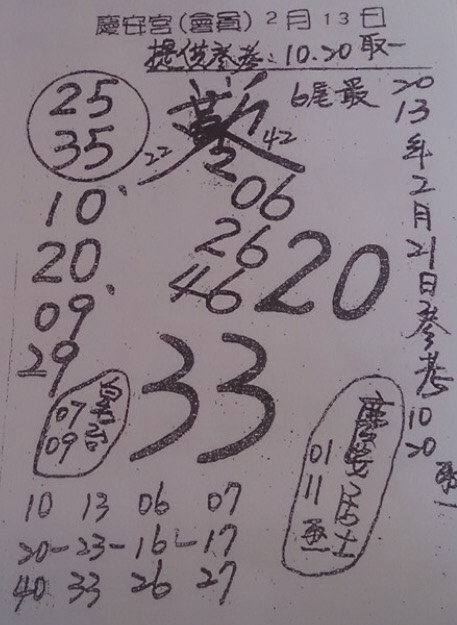 慶安宮(會員)2月13日
提供參考:10.20取一
25
35
22
42
6尾最
10、
20
09、
29
06
26
46
20
33
07
09
10 13 06 07
20-23-16-17
40 33 26 27
慶安居士
01
11
2013年2月21日參考
10
20